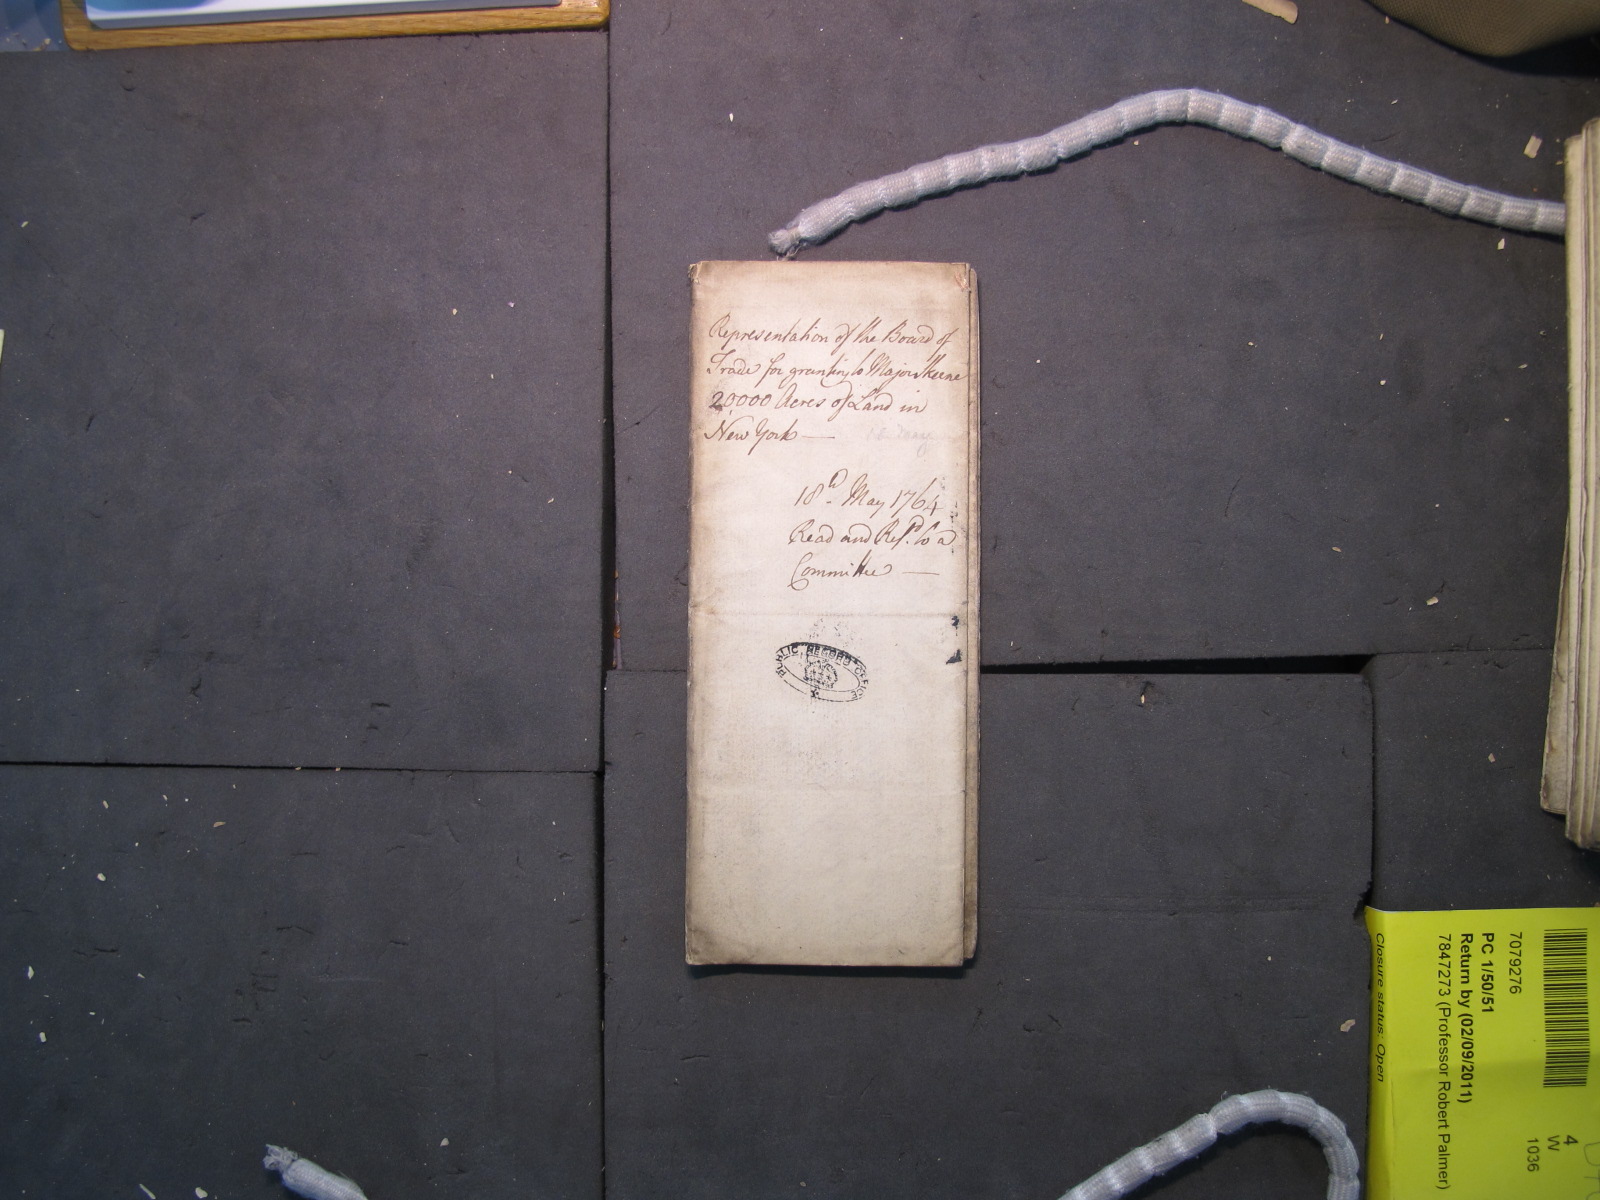 Representation of the Board of
Trade for granting to Major Skeene
20,000 Acres of Land in
New York —
18th May 1764
Read and Ref.d to a
Committee —
PUBLIC RECORD OFFICE
7079276
PC 1/50/51
Return by (02/09/2011)
7847273 (Professor Robert Palmer)
Closure status: Open
4
W
1036